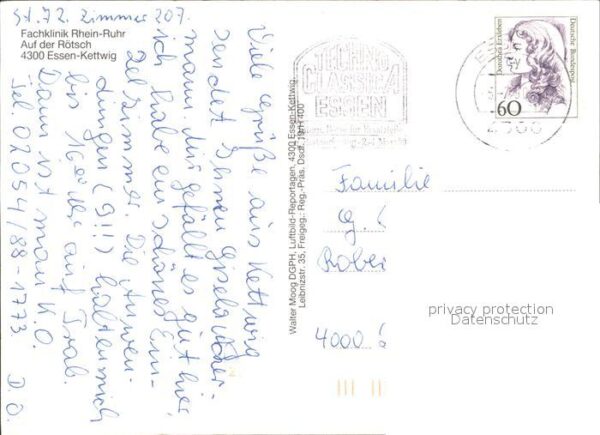 St. 72. Zimmer 207.
Fachklinik Rhein-Ruhr
Auf der Rötsch
4300 Essen-Kettwig
Viele Grüße aus Kettwig
sendet Ihnen Gisela
mann. Mir gefällt es gut hier,
ich habe ein schönes Ein-
zelzimmer. Die Anwen-
dungen (9!!) halten mich
bis 16 00 Uhr auf Trab.
Dann ist man K.O.
Tel. 02054/88-1773
D. O.
Walter Moog DGPH, Luftbild-Reportagen, 4300 Essen-Kettwig,
Leibnizstr. 35, Freigeg.: Reg.-Präs. Dsdf.
TECHNO
CLASSICA
ESSEN
4300
Dorothea Erxleben
Deutsche Bundespost
60
Familie
G.
Rober
4000
privacy protection
Datenschutz